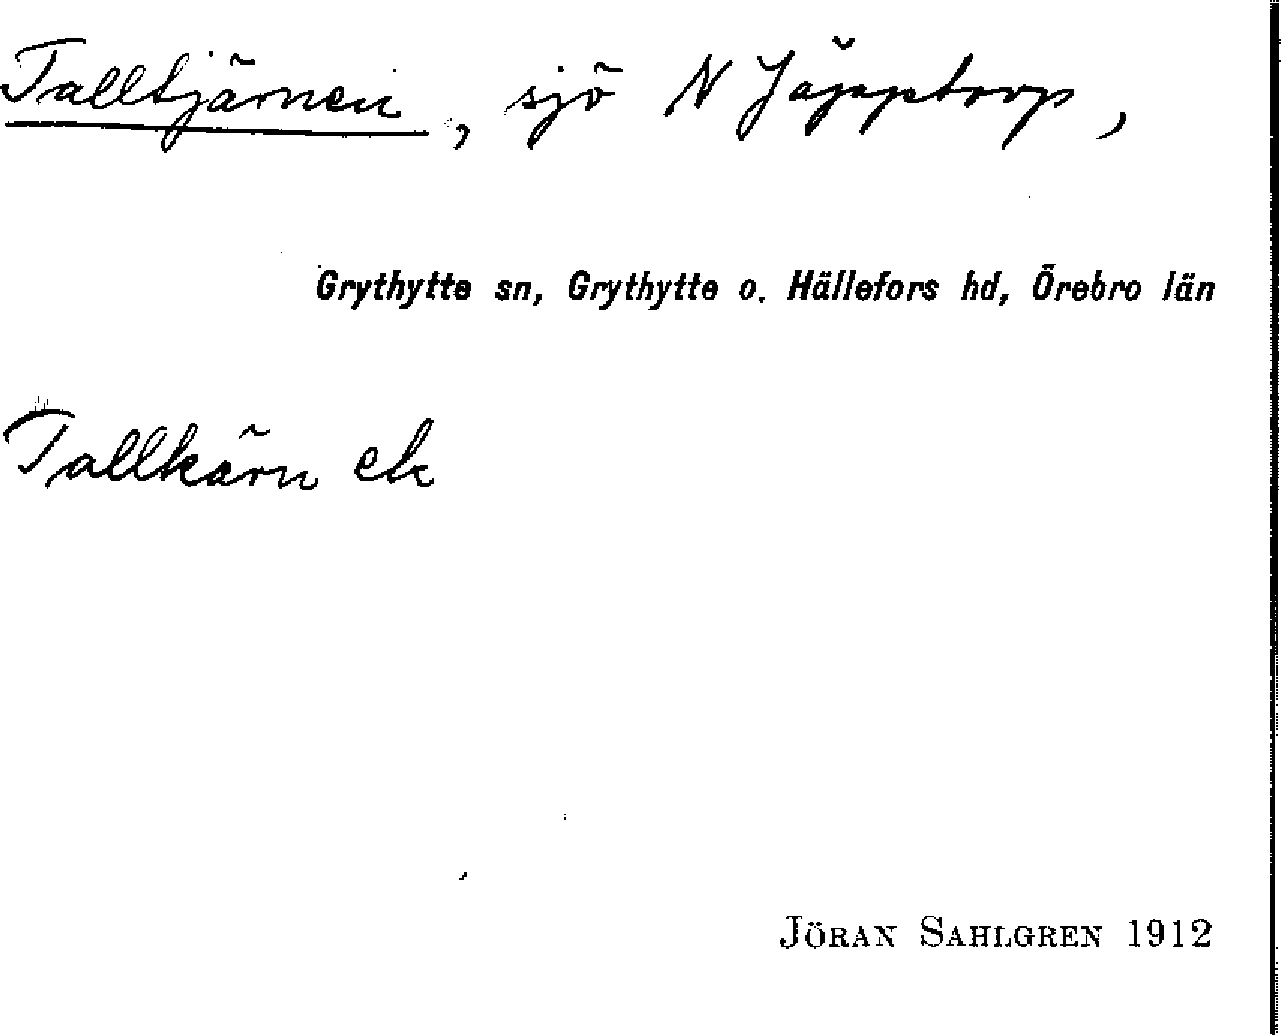 Talltjärnen, sjö N Jäpptorp,
Grythytte sn, Grythytte o. Hällefors hd, Örebro län
Tallkärn ek
JÖRAN SAHLGREN 1912